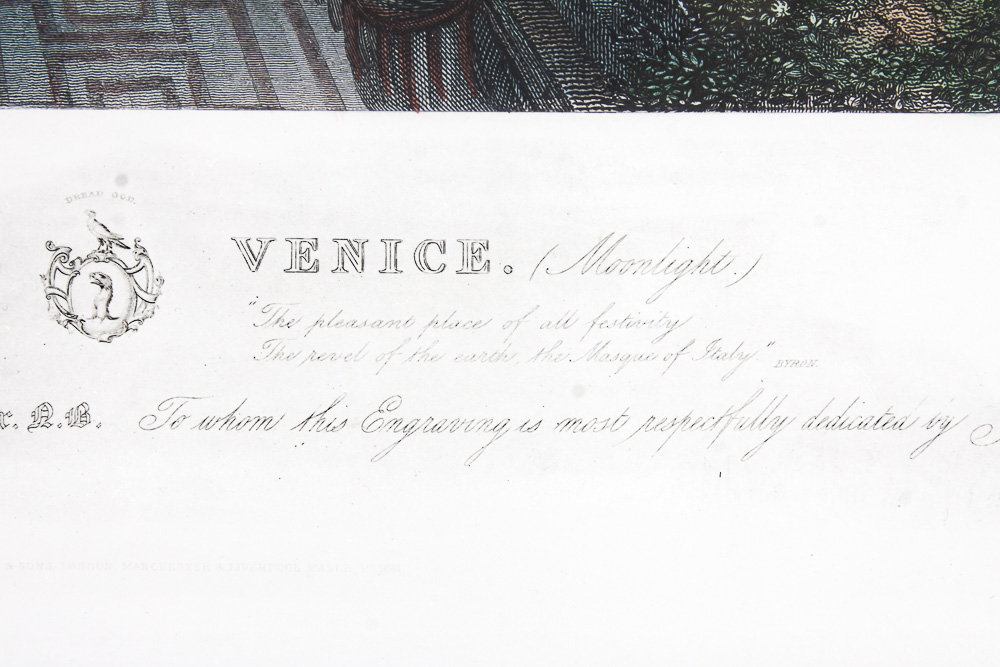 DREAD GOD.
VENICE. (Moonlight.)
"The pleasant place of all festivity
The revel of the earth, the Masque of Italy." BYRON.
r. N.B. To whom this Engraving is most respectfully dedicated by